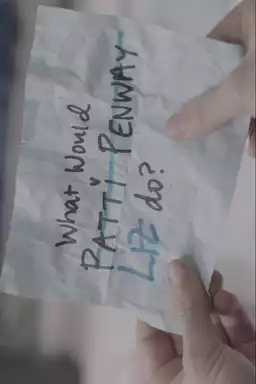 What Would
PATTI PENWAY
LIZ do?